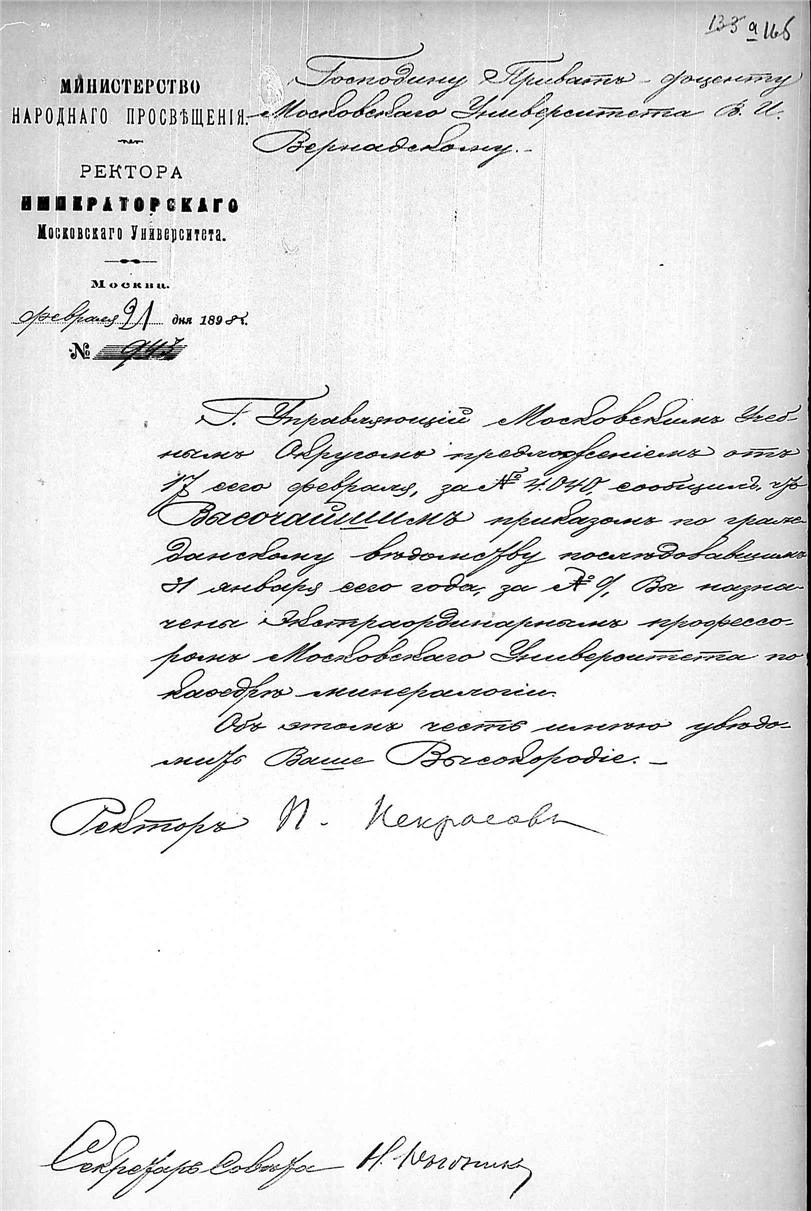 133 а 165
Господину Приватъ-доценту
Московскаго Университета В. И.
Вернадскому.
МИНИСТЕРСТВО
НАРОДНАГО ПРОСВѢЩЕНІЯ.
РЕКТОРА
ИМПЕРАТОРСКАГО
Московскаго Университета.
Москва.
февраля 21 дня 1898 г.
№ 945
Г. Управляющій Московскимъ Учеб-
нымъ Округомъ предложеніемъ отъ
17 сего февраля, за № 4040, сообщилъ, что
Высочайшимъ приказомъ по граж-
данскому вѣдомству послѣдовавшимъ
31 января сего года, за № 9, Вы назна-
чены экстраординарнымъ профессо-
ромъ Московскаго Университета по
каѳедрѣ минералогіи.
Объ этомъ честь имѣю увѣдо-
мить Ваше Высокородіе.
Ректоръ П. Некрасовъ
Секретарь Совѣта Н.